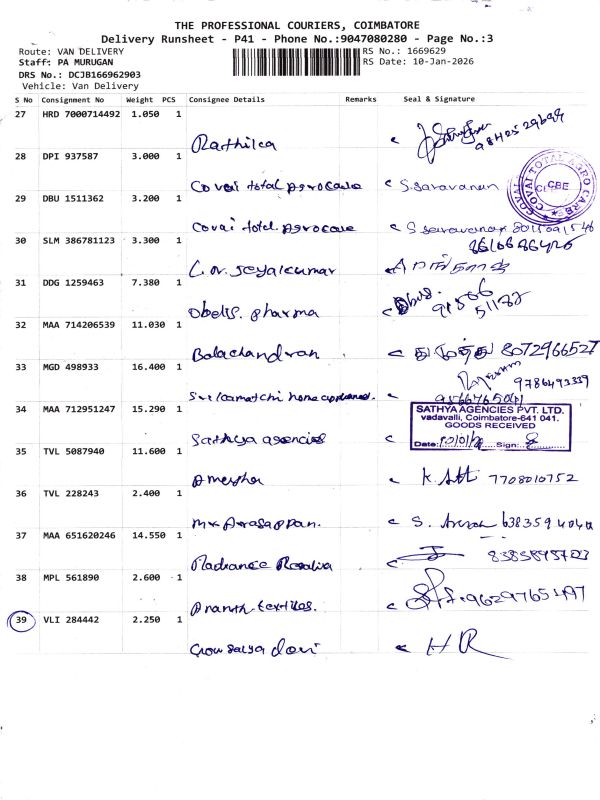 THE PROFESSIONAL COURIERS, COIMBATORE
Delivery Runsheet - P41 - Phone No.:9047080280 - Page No.:3
Route: VAN DELIVERY
RS No.: 1669629
Staff: PA MURUGAN
RS Date: 10-Jan-2026
DRS No.: DCJB166962903
Vehicle: Van Delivery
S No Consignment No Weight PCS Consignee Details Remarks Seal & Signature
27 HRD 7000714492 1.050 1
Rathika
28 DPI 937587 3.000 1
Covai total Agrocare S.Saravanan
COVAI TOTAL AGRO CARE CBE
29 DBU 1511362 3.200 1
Covai total Agrocare
30 SLM 386781123 3.300 1
C.N. Jeyakumar
31 DDG 1259463 7.380 1
Obelis pharma
32 MAA 714206539 11.030 1
Balachandran 8072966527
33 MGD 498933 16.400 1
9786493339
34 MAA 712951247 15.290 1
SATHYA AGENCIES PVT. LTD.
vadavalli, Coimbatore-641 041.
GOODS RECEIVED
Date: Sign:
Sathya agencies
35 TVL 5087940 11.600 1
7708010752
36 TVL 228243 2.400 1
Mr Arasappan. S.
37 MAA 651620246 14.550 1
Radiance
38 MPL 561890 2.600 1
Ananth textiles.
39 VLI 284442 2.250 1
Gowsalya devi HR